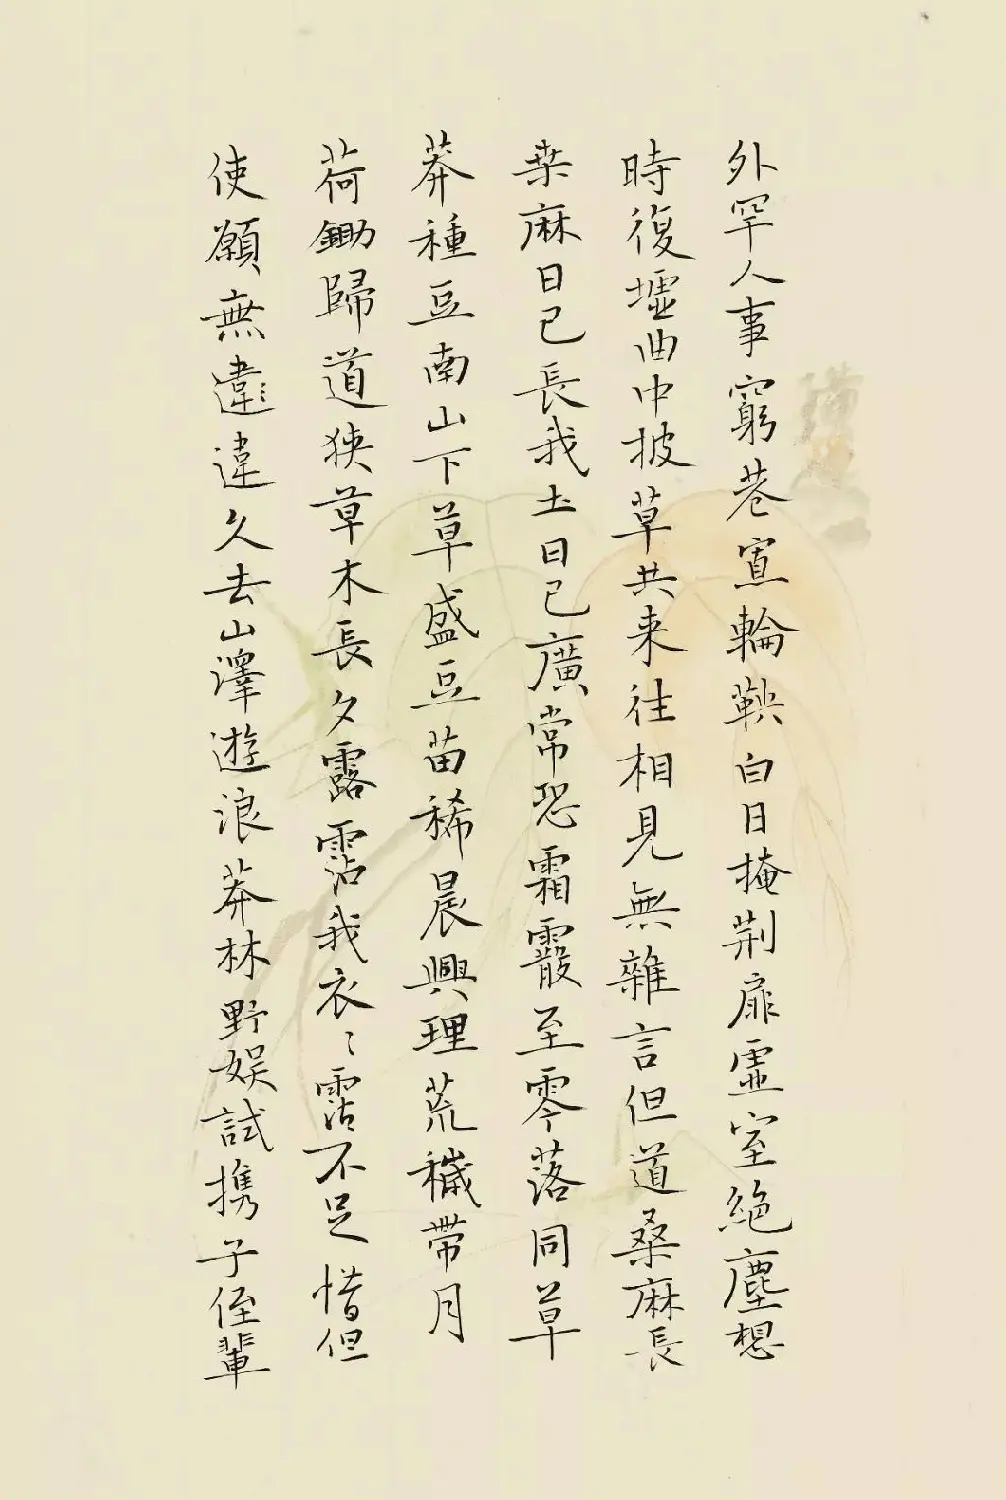 外罕人事窮巷寡輪鞅白日掩荆扉虛室絕塵想
時復墟曲中披草共来往相見無雜言但道桑麻長
桒麻日已長我土日已廣常恐霜霰至零落同草
莽種豆南山下草盛豆苗稀晨興理荒穢帶月
荷鋤歸道狹草木長夕露霑我衣〻霑不足惜但
使願無違違久去山澤遊浪莽林野娱試携子侄輩